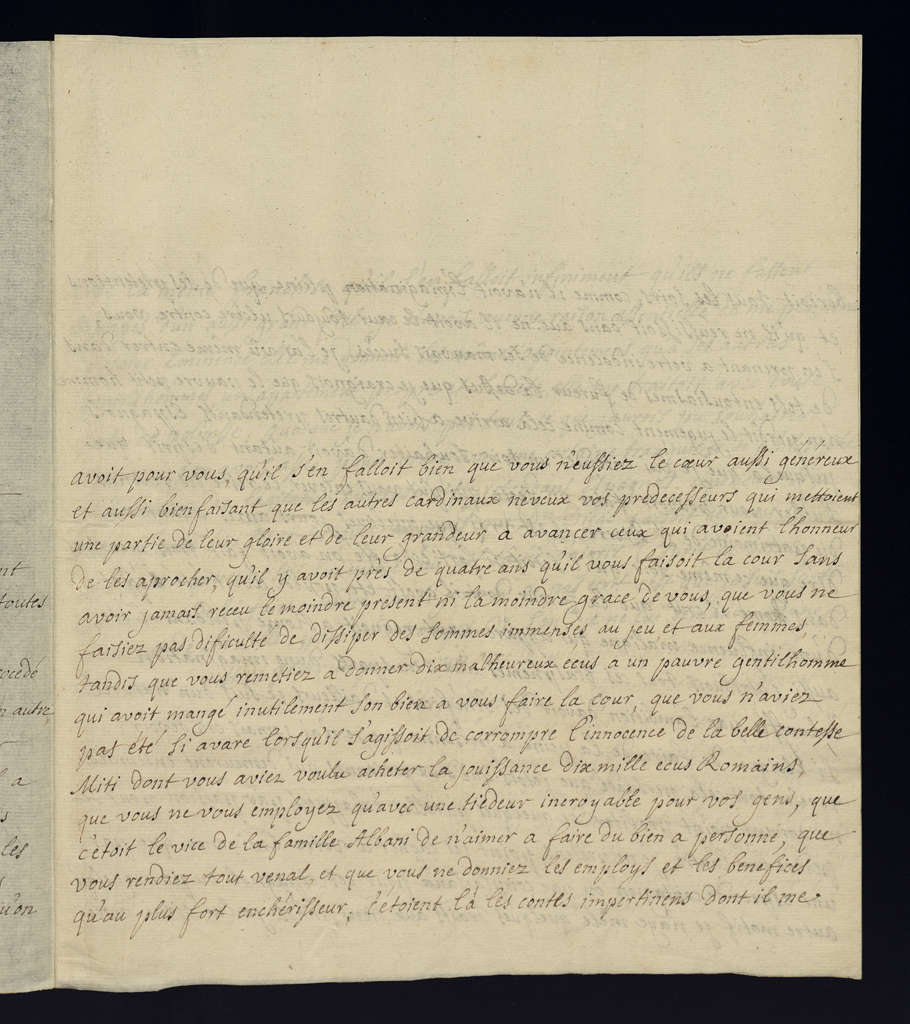 avoit pour vous, qu'il s'en falloit bien que vous n'eussiez le cœur aussi généreux
et aussi bienfaisant que les autres cardinaux neveux vos predecesseurs qui mettoient
une partie de leur gloire et de leur grandeur a avancer ceux qui avoient l'honneur
de les aprocher, qu'il y avoit près de quatre ans qu'il vous faisoit la cour sans
avoir jamais receu le moindre present ni la moindre grace de vous, que vous ne
faisiez pas dificulté de dissiper des sommes immenses au jeu et aux femmes,
tandis que vous remetiez a donner dix malheureux ecus a un pauvre gentilhomme
qui avoit mangé inutilement son bien a vous faire la cour, que vous n'aviez
pas été si avare lorsqu'il s'agissoit de corrompre l'innocence de la belle contesse
Miti dont vous aviez voulu acheter la jouissance dix mille ecus Romains,
que vous ne vous employez qu'avec une tiedeur incroyable pour vos gens, que
c'étoit le vice de la famille Albani de n'aimer a faire du bien a personne, que
vous rendiez tout venal, et que vous ne donniez les employs et les benefices
qu'au plus fort enchérisseur, c'étoient là les contes impertinens dont il me
nt
toutes
rocedé
n autre
a
s
les
u'on